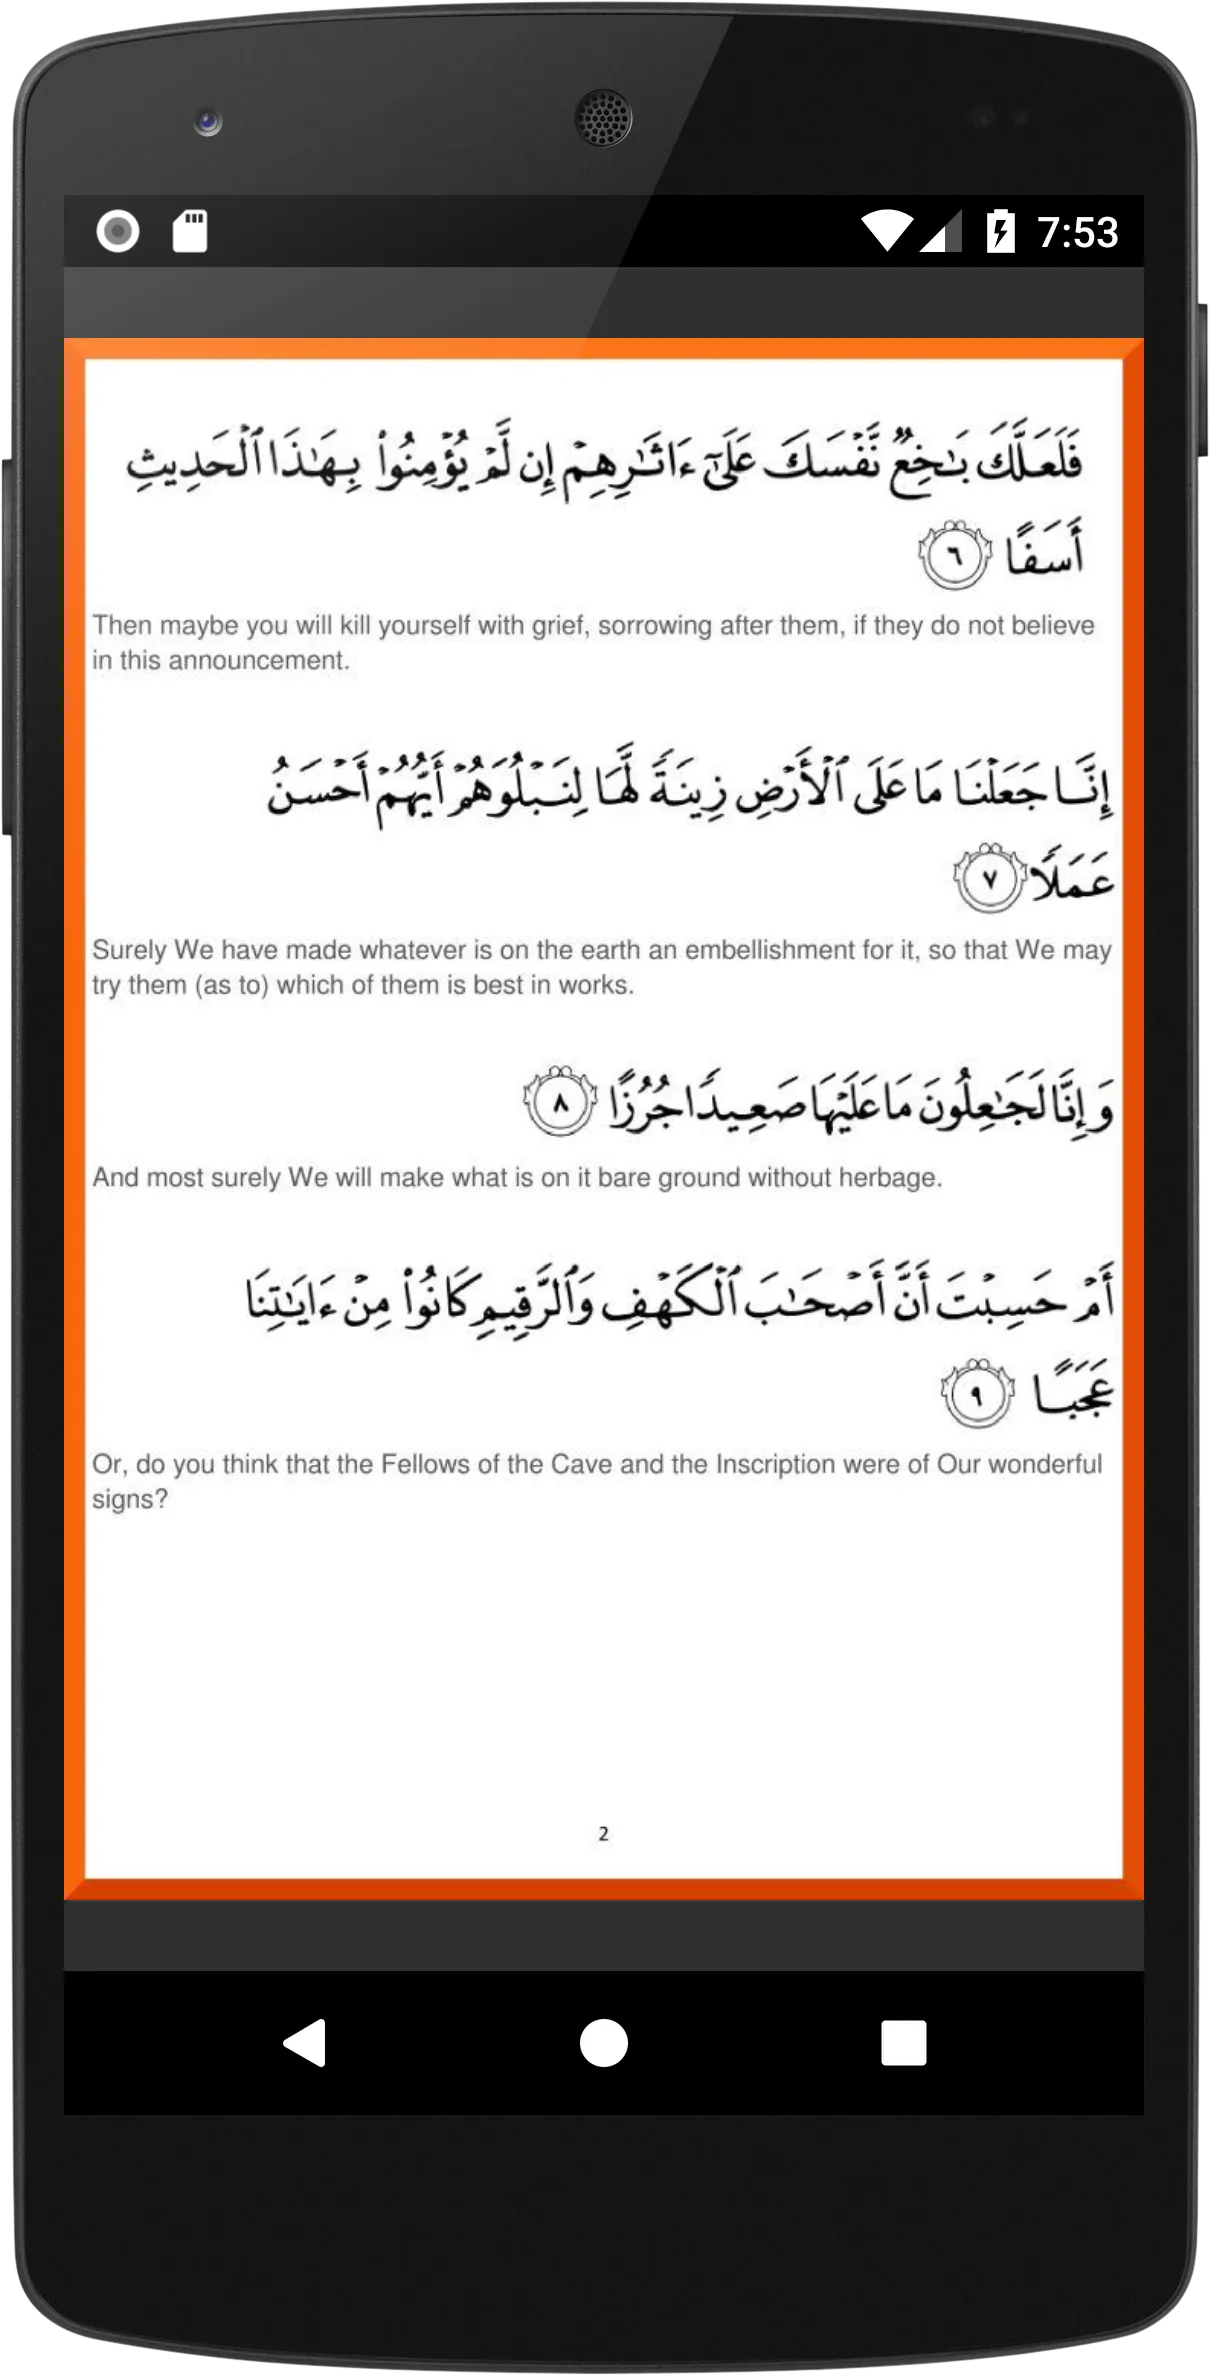 7:53
فَلَعَلَّكَ بَٰخِعٌ نَّفْسَكَ عَلَىٰٓ ءَاثَٰرِهِمْ إِن لَّمْ يُؤْمِنُوا۟ بِهَٰذَا ٱلْحَدِيثِ
أَسَفًا ٦
Then maybe you will kill yourself with grief, sorrowing after them, if they do not believe
in this announcement.
إِنَّا جَعَلْنَا مَا عَلَى ٱلْأَرْضِ زِينَةً لَّهَا لِنَبْلُوَهُمْ أَيُّهُمْ أَحْسَنُ
عَمَلًا ٧
Surely We have made whatever is on the earth an embellishment for it, so that We may
try them (as to) which of them is best in works.
وَإِنَّا لَجَٰعِلُونَ مَا عَلَيْهَا صَعِيدًا جُرُزًا ٨
And most surely We will make what is on it bare ground without herbage.
أَمْ حَسِبْتَ أَنَّ أَصْحَٰبَ ٱلْكَهْفِ وَٱلرَّقِيمِ كَانُوا۟ مِنْ ءَايَٰتِنَا
عَجَبًا ٩
Or, do you think that the Fellows of the Cave and the Inscription were of Our wonderful
signs?
2